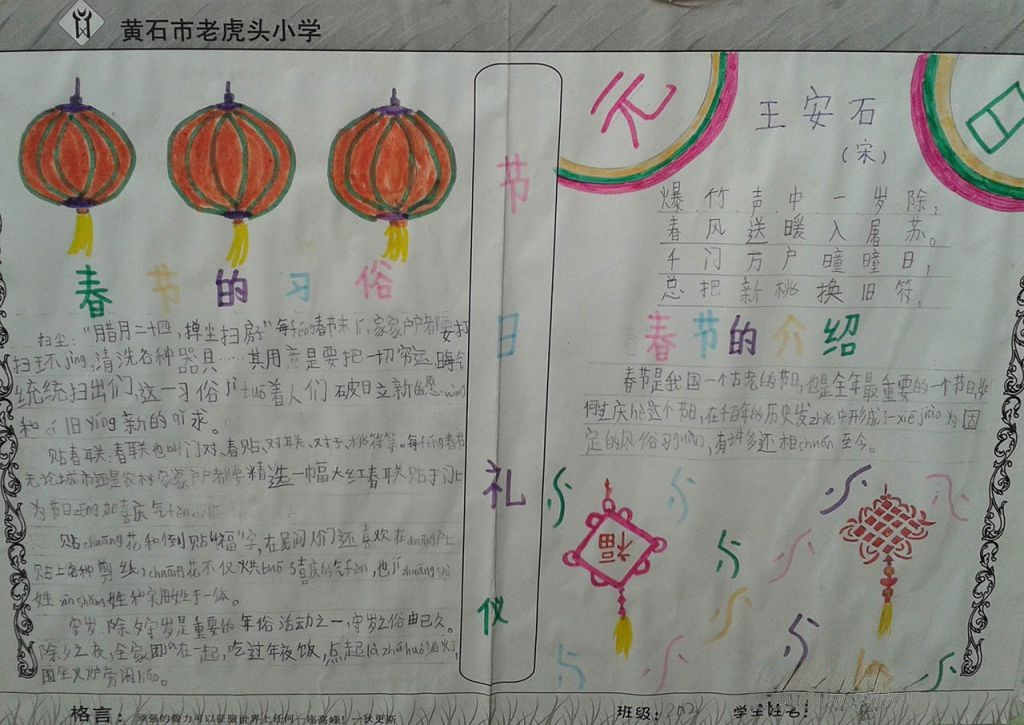 黄石市老虎头小学
春节的习俗
扫尘:“腊月二十四,掸尘扫房子”每féng春节来
扫环jìng,清洗各种器具……其用意是要把一切穷运、晦气
统统扫出门,这一习俗jì tuō着人们破旧立新的愿wàng
和 旧yíng新的qí求。
贴春联:春联也叫门对、春贴、对联、对子、桃符等。每féng春节
无论城市还是农村家家户户都要精选一幅大红春联贴于门上
为节日zēng加喜庆气
贴chuāng花和倒贴“福”字,在民间人们还喜欢在chuāng户上
贴上各种剪纸,chuāng花不仅hōng tuō了喜庆的气fēn,也jí zhuāng shì
姓xīn shǎng姓和实用姓于一体。
守岁:除夕守岁是重要的年俗活动之一,守岁之俗由已久。
除夕之夜,全家团 在一起,吃过年夜饭,点起là zhú huò油灯,
围坐火炉旁闲liáo。
节日礼仪
元日
王安石
(宋)
爆竹声中一岁除,
春风送暖入屠苏。
千门万户曈曈日,
总把新桃换旧符。
春节的介绍
春节是我国一个古老的节日,也是全年最重要的一个节日,如
何庆hè这个节日,在千百年的历史发zhǎn中形成了一xiē jiào为固
定的风俗习guàn,有许多还相chuán至今。
福
格言:顽强的毅力可以征服世界上任何一座高峰!—狄更斯
班级:302
学生姓名: